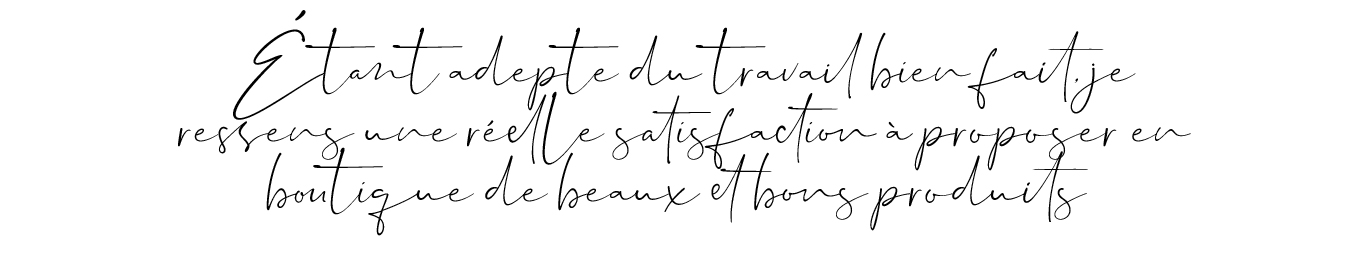 Étant adepte du travail bien fait, je
ressens une réelle satisfaction à proposer en
boutique de beaux et bons produits